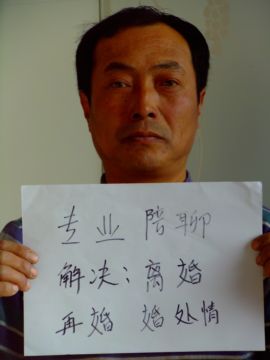 专业 陪聊
解决：离婚
再婚 婚处情